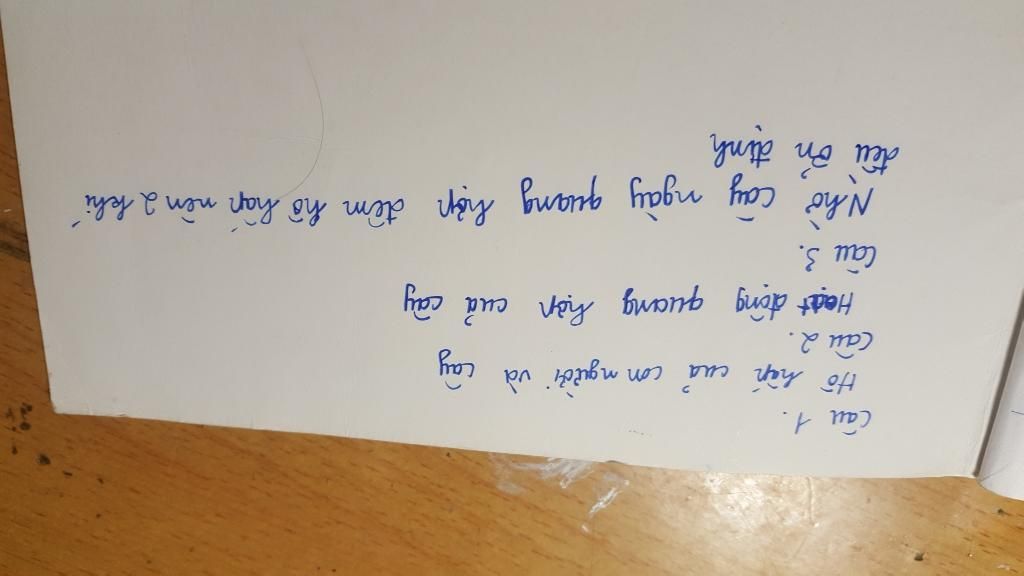 Câu 1.
Hô hấp của con người và cây
Câu 2.
Hoạt động quang hợp của cây
Câu 3.
Nhờ cây ngày quang hợp đêm hô hấp nên 2 khí
đều ổn định